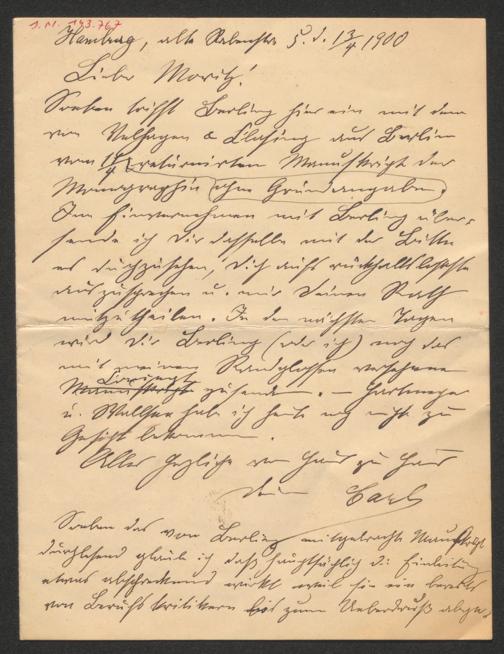 I.N. 193.767
Hamburg, alte Rabenstr 5. d. 13/4 1900
Lieber Moritz!
Soeben trifft Berling hier ein mit dem
von Velhagen & Clasing aus Berlin
vom returnirten Manuskript der
Monographie ohne Grundangabe.
Im Einvernehmen mit Berling über-
sende ich Dir dasselbe mit der Bitte
es durchzusehen, Dich aufs rückhaltloseste
auszusprechen u. mir Deinen Rath
mitzutheilen. In den nächsten Tagen
wird Dir Berling (oder ich) noch das
mit meinen Randglossen versehene
Manuskript zusenden. –
u. habe ich heute noch nicht zu
Gesicht bekommen.
Alles Herzliche von Haus zu Haus
Dein Carl
Soeben das von Berling mitgebrachte Manuskript
durchlesend glaube ich daß hauptsächlich die Einleitung
etwas abschreckend wirkt weil sie ein bereits
von Berufskritikern bis zum Ueberdruß abge-